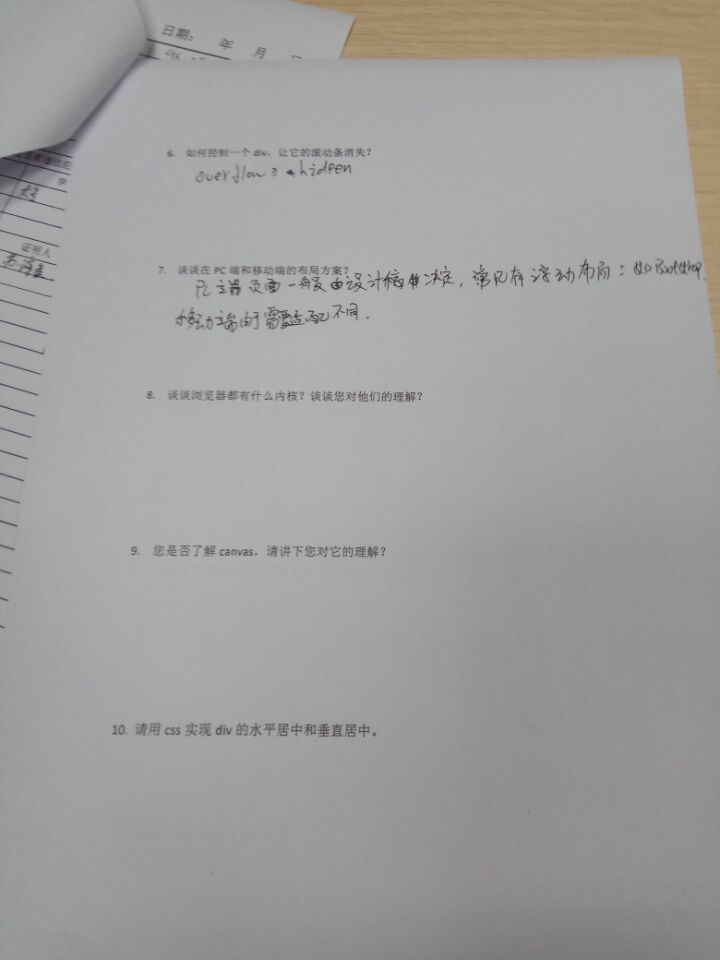 日期: 年 月
学
证明人
6. 如何控制一个 div，让它的滚动条消失？
overflow: hideen
7. 谈谈在 PC 端和移动端的布局方案？
PC 端 页面 一般 由设计稿 决定，常见有 浮动布局：如 Bootstrap.
移动端由于需要适配不同.
8. 谈谈浏览器都有什么内核？谈谈您对他们的理解？
9. 您是否了解 canvas，请讲下您对它的理解？
10. 请用 css 实现 div 的水平居中和垂直居中。